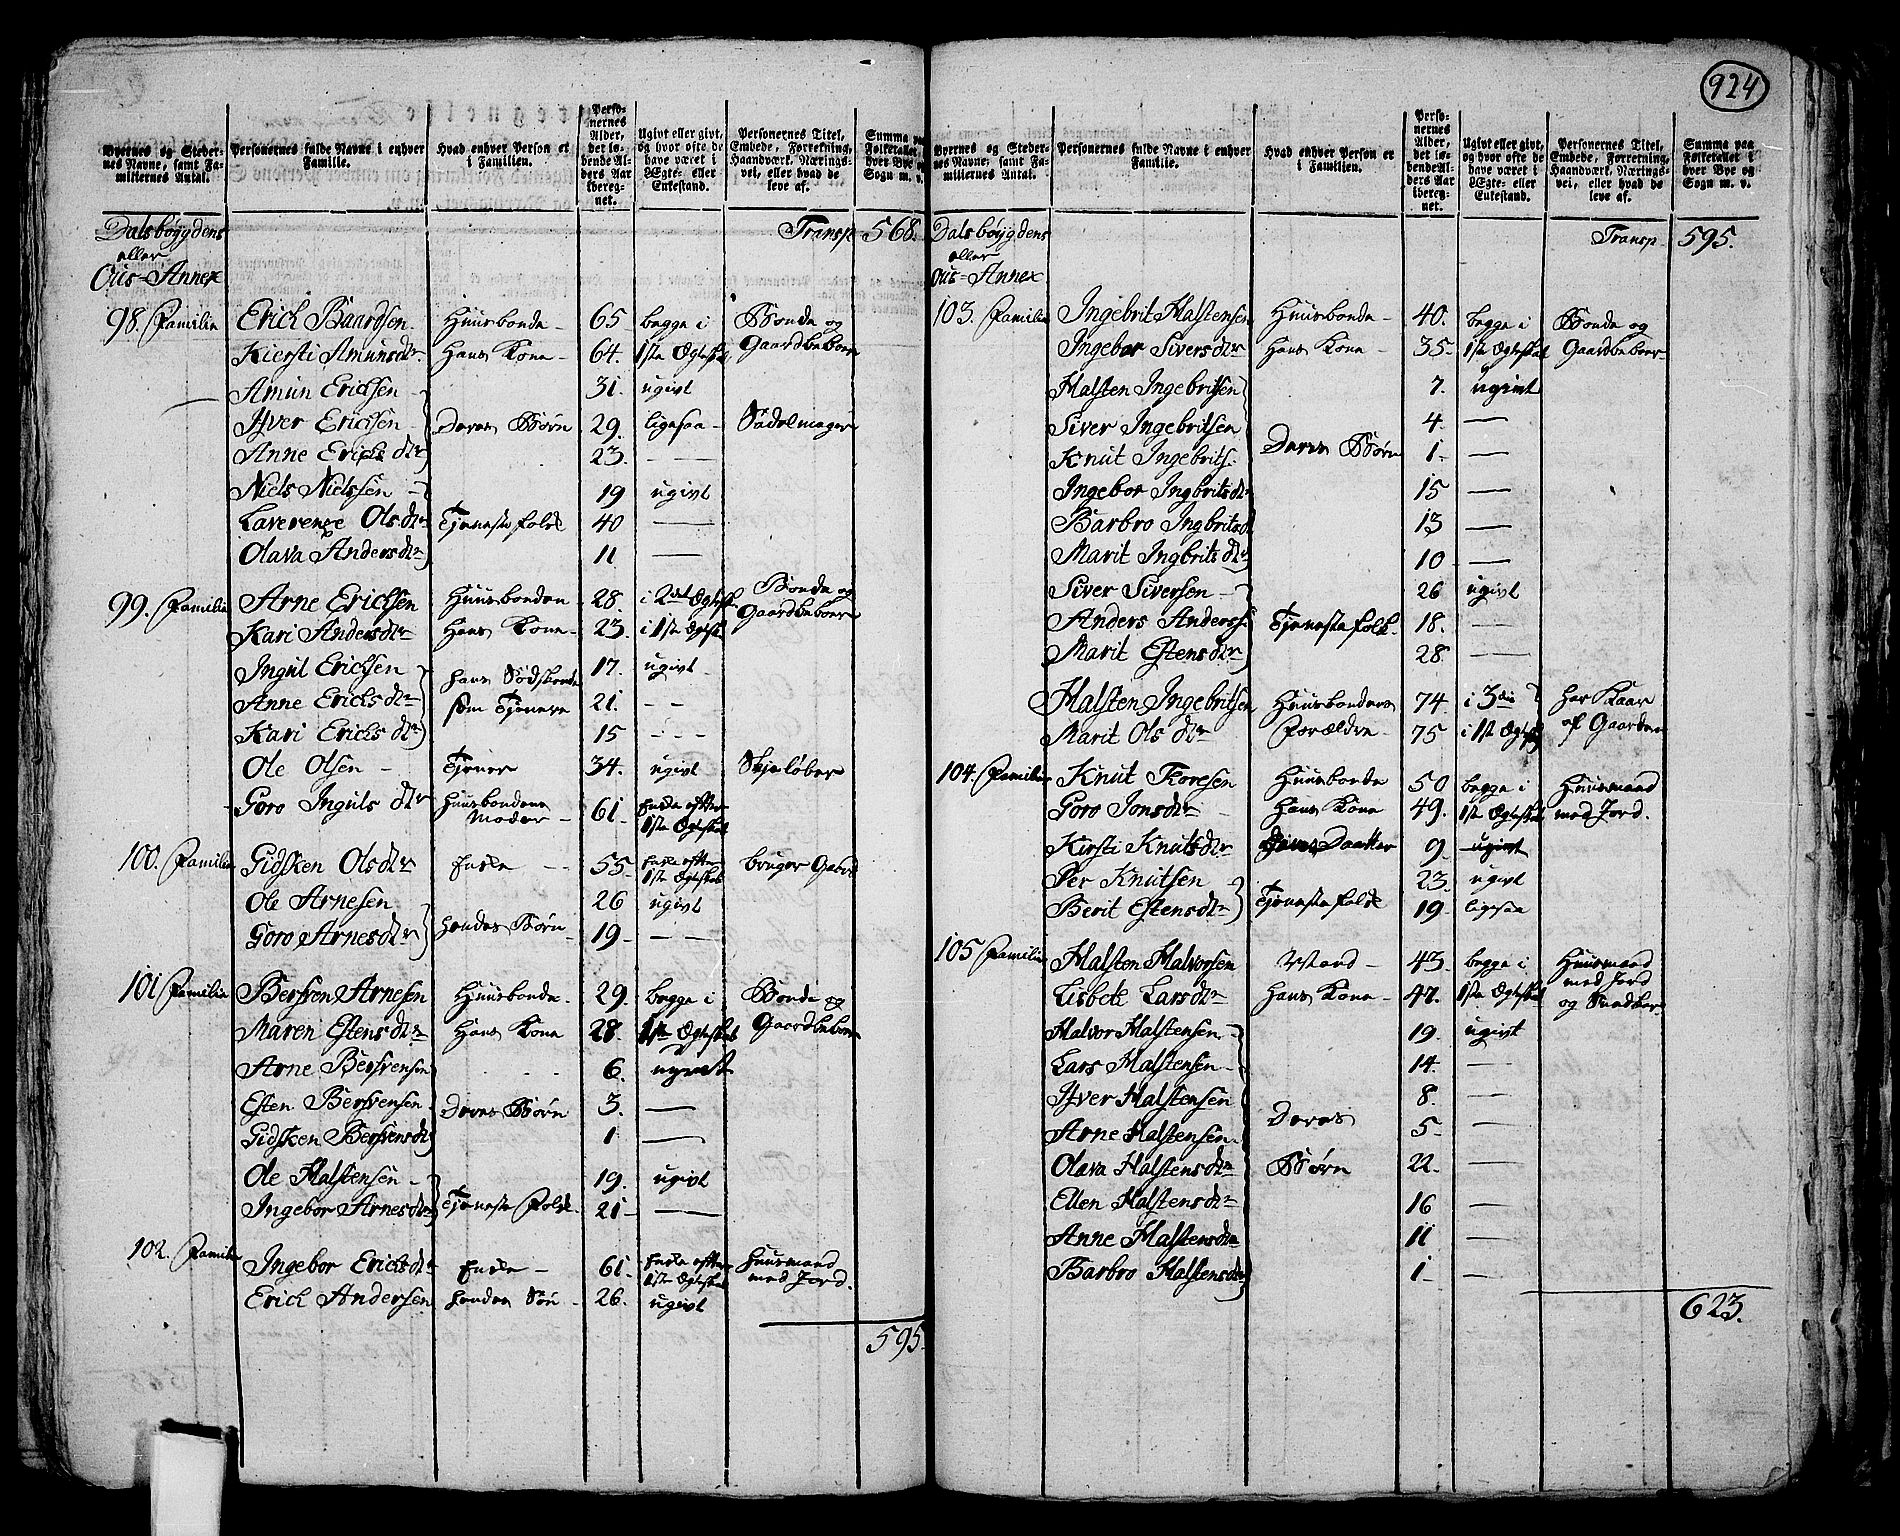 924
Byernes og Stedernes Navne, samt Familiernes Antal. Personernes fulde Navne i enhver Familie. Hvad enhver Person er i Familien. Personernes Alder, det løbende Alders Aar iberegnet. Ugivt eller givt, og hvor ofte de have været i Ægte- eller Enkestand. Personernes Titel, Embede, Forretning, Haandværk, Næringsvei, eller hvad de leve af. Summa paa Folketallet i hver Bye og Sogn m. v.
Dalsbøygdens Transp 568.
eller
Ous=Annex
98. Familie Erich Baardsen Huusbonde 65 begge i Bonde og
Kiersti Amunsdtr Hans Kone 64. 1ste Ægteskab Gaardbeboer
Amun Erichsen 31. ugivt
Ifver Erichsen Deres Børn 29. ligesaa Sadelmager
Anne Erichsdtr 23. —
Niels Nielssen 19 ugivt
Laverenze Olsdtr Tjenestefolk 40 —
Olava Andersdtr 11 —
99. Familie Arne Erichsen Huusbonden 28. i 2det Ægtesk. Bonde og
Kari Andersdtr Hans Kone 23. i 1ste Ægtesk. Gaardbeboere
Ingul Erichsen hans Södskende 17. ugivt
Anne Erichsdtr som Tjenere 21. —
Kari Erichsdtr 15 —
Ole Olsen Tjener 34. ugivt Skieløber
Goro Inguls dtr Huusbondens Moder 61. Enke efter 1ste Ægteskab
100. Familie Gidsken Olsdtr Enke 55 Enke efter 1ste Ægteskab bruger Gaard
Ole Arnesen 26 ugivt
Goro Arnesdtr hendes Børn 19 —
101 Familie Bersven Arnesen Huusbonde 29. begge i Bonde og
Maren Estensdtr Hans Kone 28. 1ste Ægteskab Gaardbeboer
Arne Bersvensen 6. ugivt
Esten Bersvensen Deres Børn 3. —
Gidsken Bersvensdtr 1 —
Ole Halstensen 19. ugivt
Ingebor Arnesdtr Tjeneste Folk 21 —
102. Familie Ingebor Erichsdtr Enke 61 Enke efter 1ste Ægteskab Huusmand
Erich Andersen hendes Søn 26. ugivt med Jord.
595
Byernes og Stedernes Navne, samt Familiernes Antal. Personernes fulde Navne i enhver Familie. Hvad enhver Person er i Familien. Personernes Alder, det løbende Alders Aar iberegnet. Ugivt eller givt, og hvor ofte de have været i Ægte- eller Enkestand. Personernes Titel, Embede, Forretning, Haandværk, Næringsvei, eller hvad de leve af. Summa paa Folketallet i hver Bye og Sogn m. v.
Dalsbøygdens Transp 595.
eller
Ous=Annex
103. Familie Ingebrit Halstensen Huusbonde 40. begge i Bonde og
Ingebor Siversdtr Hans Kone 35 1ste Ægteskab Gaardbeboer
Halsten Ingebritsen 7. ugivt
Siver Ingebritsen 4 —
Knut Ingebrits. Deres Børn 1 —
Ingebor Ingbritsdtr 15 —
Barbro Ingbritsd 13 —
Marit Ingbritsdtr 10 —
Siver Siversen 26 ugivt
Anders Anderss Tjenestefolk 18. —
Marit Estensdtr 28. —
Halsten Ingebritsen Huusbondens 74 i 3die har Kaar
Marit Olsdtr Forældre 75 i 1ste Ægtesk af Gaarden
104. Familie Knut Toresen Huusbonde 50 begge i Huusmand
Goro Jonsdtr Hans Kone 49. 1ste Ægteskab med Jord.
Kirsti Knutsdtr Deres Daatter 9 ugivt
Per Knutsen 23. ugivt
Berit Estensdtr Tjenestefolk 19. ligesaa
105 Familie Halsten Halvorsen Mand 43. begge i Huusmand
Lisbet Larsdtr Hans Kone 47. 1ste Ægteskab med Jord
Halvor Halstensen 19. ugivt og
Lars Halstensen 14 —
Ifver Halstensen 8. —
Arne Halstensen Deres 5 —
Olava Halstensdtr Børn 22. —
Ellen Halstensdtr 16 —
Anne Halstensdtr 11 —
Barbro Halstensdtr 1 —
623.